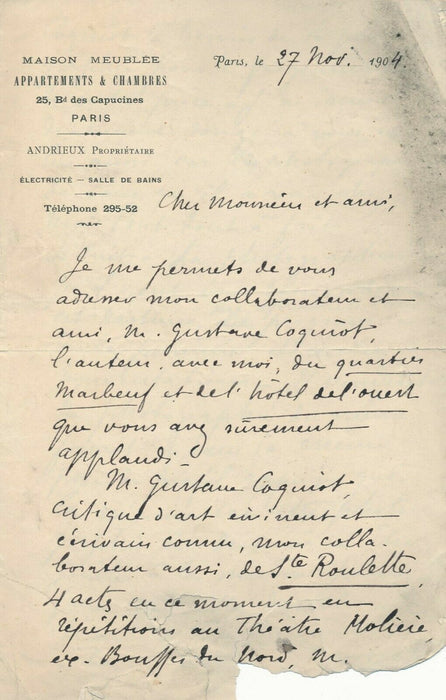 MAISON MEUBLÉE
APPARTEMENTS & CHAMBRES
25, Bd des Capucines
PARIS
ANDRIEUX PROPRIÉTAIRE
ÉLECTRICITÉ — SALLE DE BAINS
Téléphone 295-52
Paris, le 27 Nov. 1904.
Cher Monsieur et ami,
Je me permets de vous
adresser mon collaborateur et
ami, M. Gustave Coquiot,
l'auteur, avec moi, du quartier
Marbeuf et de l'hôtel de l'ouest
que vous avez sûrement
applaudi -
M. Gustave Coquiot,
critique d'art éminent et
écrivain connu, mon colla-
borateur aussi, de Ste Roulette,
4 actes en ce moment en
répétitions au Théâtre Molière,
ex-Bouffes du Nord, M.